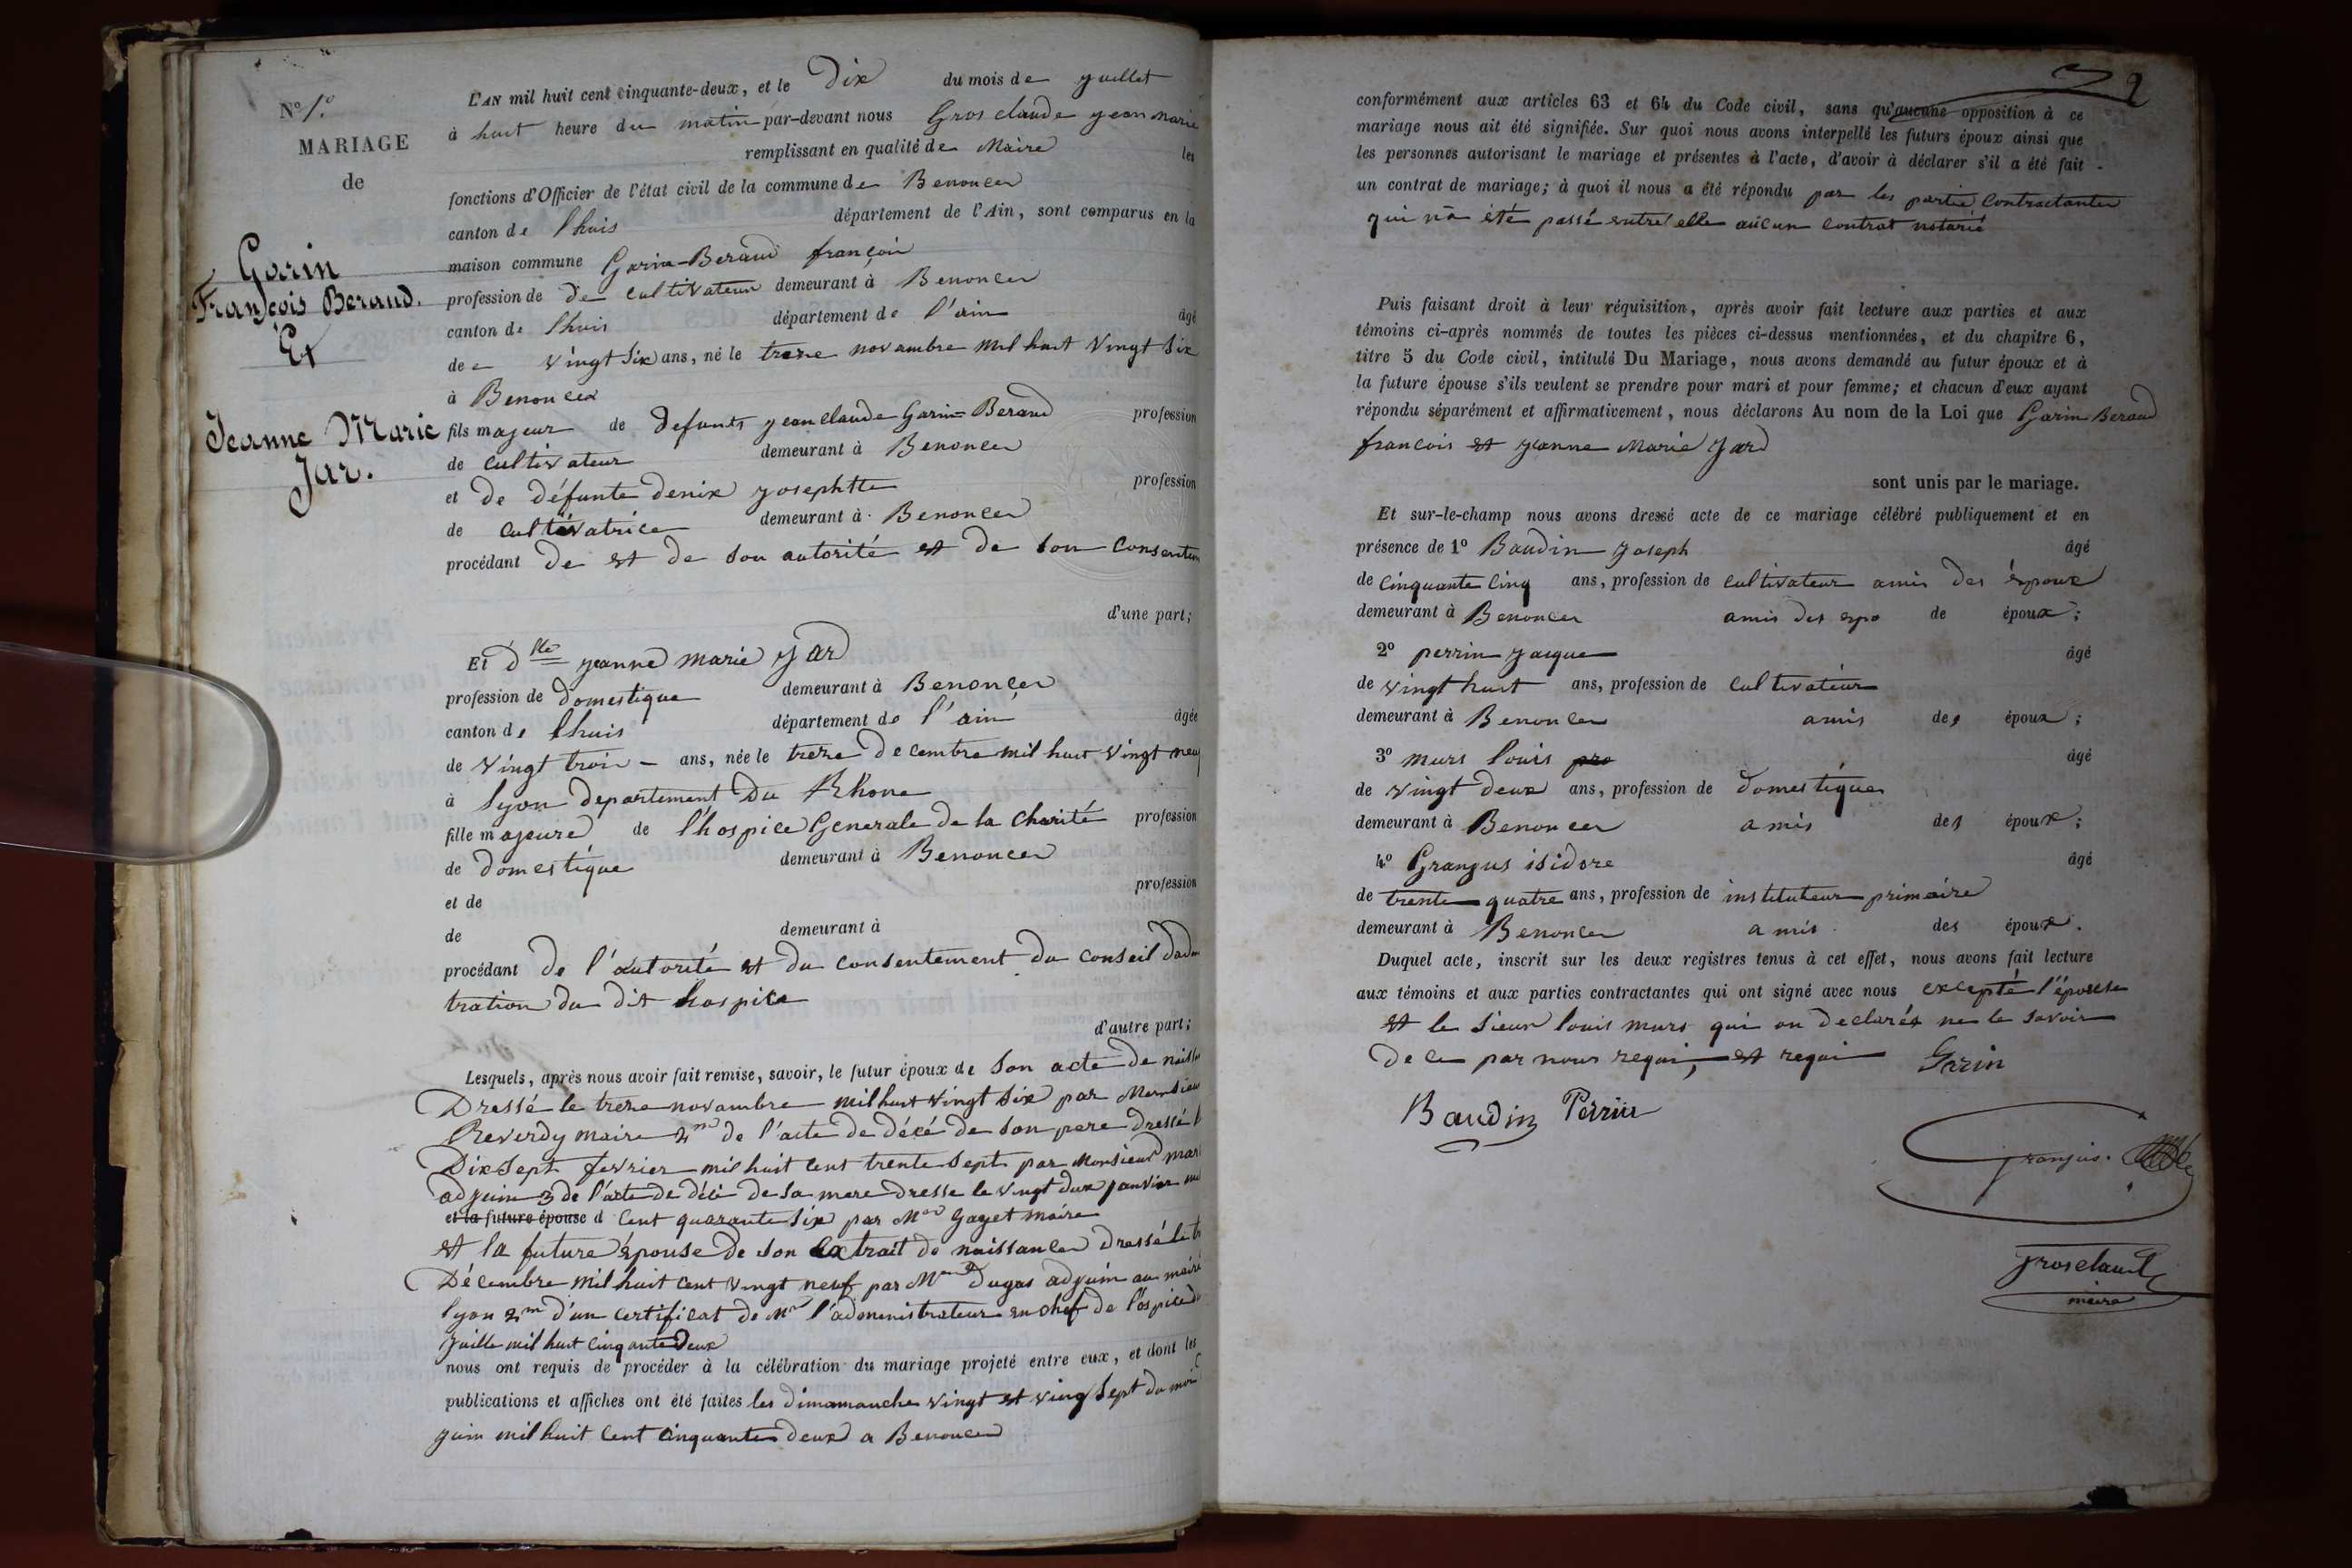 N° 1.°
MARIAGE
de
Garin
François Beraud.
Et
Jeanne Marie
Jar.
L'AN mil huit cent cinquante-deux, et le Dix du mois de juillet
à huit heure du matin par-devant nous Gros claude jean marie
remplissant en qualité de Maire les
fonctions d'Officier de l'état civil de la commune de Benonces
canton de lhuis département de l'Ain, sont comparus en la
maison commune Garin-Beraud françois
profession de de cultivateur demeurant à Benonces
canton de lhuis département de l'ain âgé
de vingt six ans, né le treze novambre mil huit vingt six
à Benonces
fils majeur de defunts jean claude Garin-Beraud profession
de cultivateur demeurant à Benonces
et de défunte denix josephtte profession
de cultivatrice demeurant à Benonces
procédant de et de son autorité et de son consentem
d'une part;
Et dlle jeanne marie jard
profession de domestique demeurant à Benonces
canton de lhuis département de l'ain âgée
de vingt trois ans, née le treze decembre mil huit vingt neuf
à lyon departement du Rhone
fille majeure de l'hospice Generale de la charité profession
de domestique demeurant à Benonces
et de profession
de demeurant à
procédant de l'autorité et du consentement du conseil dadm
tration du dit hospice
d'autre part;
Lesquels, après nous avoir fait remise, savoir, le futur époux de son acte de naissa
Dressé le treze novambre mil huit vingt six par Monsieur
Reverdy maire 2me de l'acte de décé de son pere dressé l
Dix sept fevrier mil huit cent trente sept par Monsieur mar
adjuin 3 de l'acte de décé de sa mere dresse le vingt deux janvier mil
et la future épouse d cent quarante six par Mon Gayet maire
et la future épouse de son extrait de naissance dressé le tr
Décembre mil huit cent vingt neuf par Mr Dugas adjuin au maire
lyon 2m d'un certificat de Mr l'administrateur en chef de l'ospice d
juille mil huit cinquante Deux
nous ont requis de procéder à la célébration du mariage projeté entre eux, et dont les
publications et affiches ont été faites les dimamanche vingt et ving sept du moi
juin mil huit cent cinquante deux a Benonces
2
conformément aux articles 63 et 64 du Code civil, sans qu'aucune opposition à ce
mariage nous ait été signifiée. Sur quoi nous avons interpellé les futurs époux ainsi que
les personnes autorisant le mariage et présentes à l'acte, d'avoir à déclarer s'il a été fait
un contrat de mariage; à quoi il nous a été répondu par les partie contractantes
qui n'a été passé entre elle aucun contrat notarié
Puis faisant droit à leur réquisition, après avoir fait lecture aux parties et aux
témoins ci-après nommés de toutes les pièces ci-dessus mentionnées, et du chapitre 6,
titre 5 du Code civil, intitulé Du Mariage, nous avons demandé au futur époux et à
la future épouse s'ils veulent se prendre pour mari et pour femme; et chacun d'eux ayant
répondu séparément et affirmativement, nous déclarons Au nom de la Loi que Garin Beraud
francois et jeanne Marie jard
sont unis par le mariage.
Et sur-le-champ nous avons dressé acte de ce mariage célébré publiquement et en
présence de 1° Baudin joseph âgé
de cinquante cinq ans, profession de cultivateur amis des époux
demeurant à Benonces amis des espo de époux;
2° perrin jacque âgé
de vingt huit ans, profession de cultivateur
demeurant à Benonces amis des époux;
3° murs louis pro âgé
de vingt deux ans, profession de domestique
demeurant à Benonces amis des époux;
4° Granjus isidore âgé
de trente quatre ans, profession de instituteur primaire
demeurant à Benonces amis des époux.
Duquel acte, inscrit sur les deux registres tenus à cet effet, nous avons fait lecture
aux témoins et aux parties contractantes qui ont signé avec nous excepté l'épouse
et le sieur louis murs qui on declarés ne le savoir
de ce par nous requi, et requi Garin
Baudin Perrin
Granjus.
Grosclaude
maire